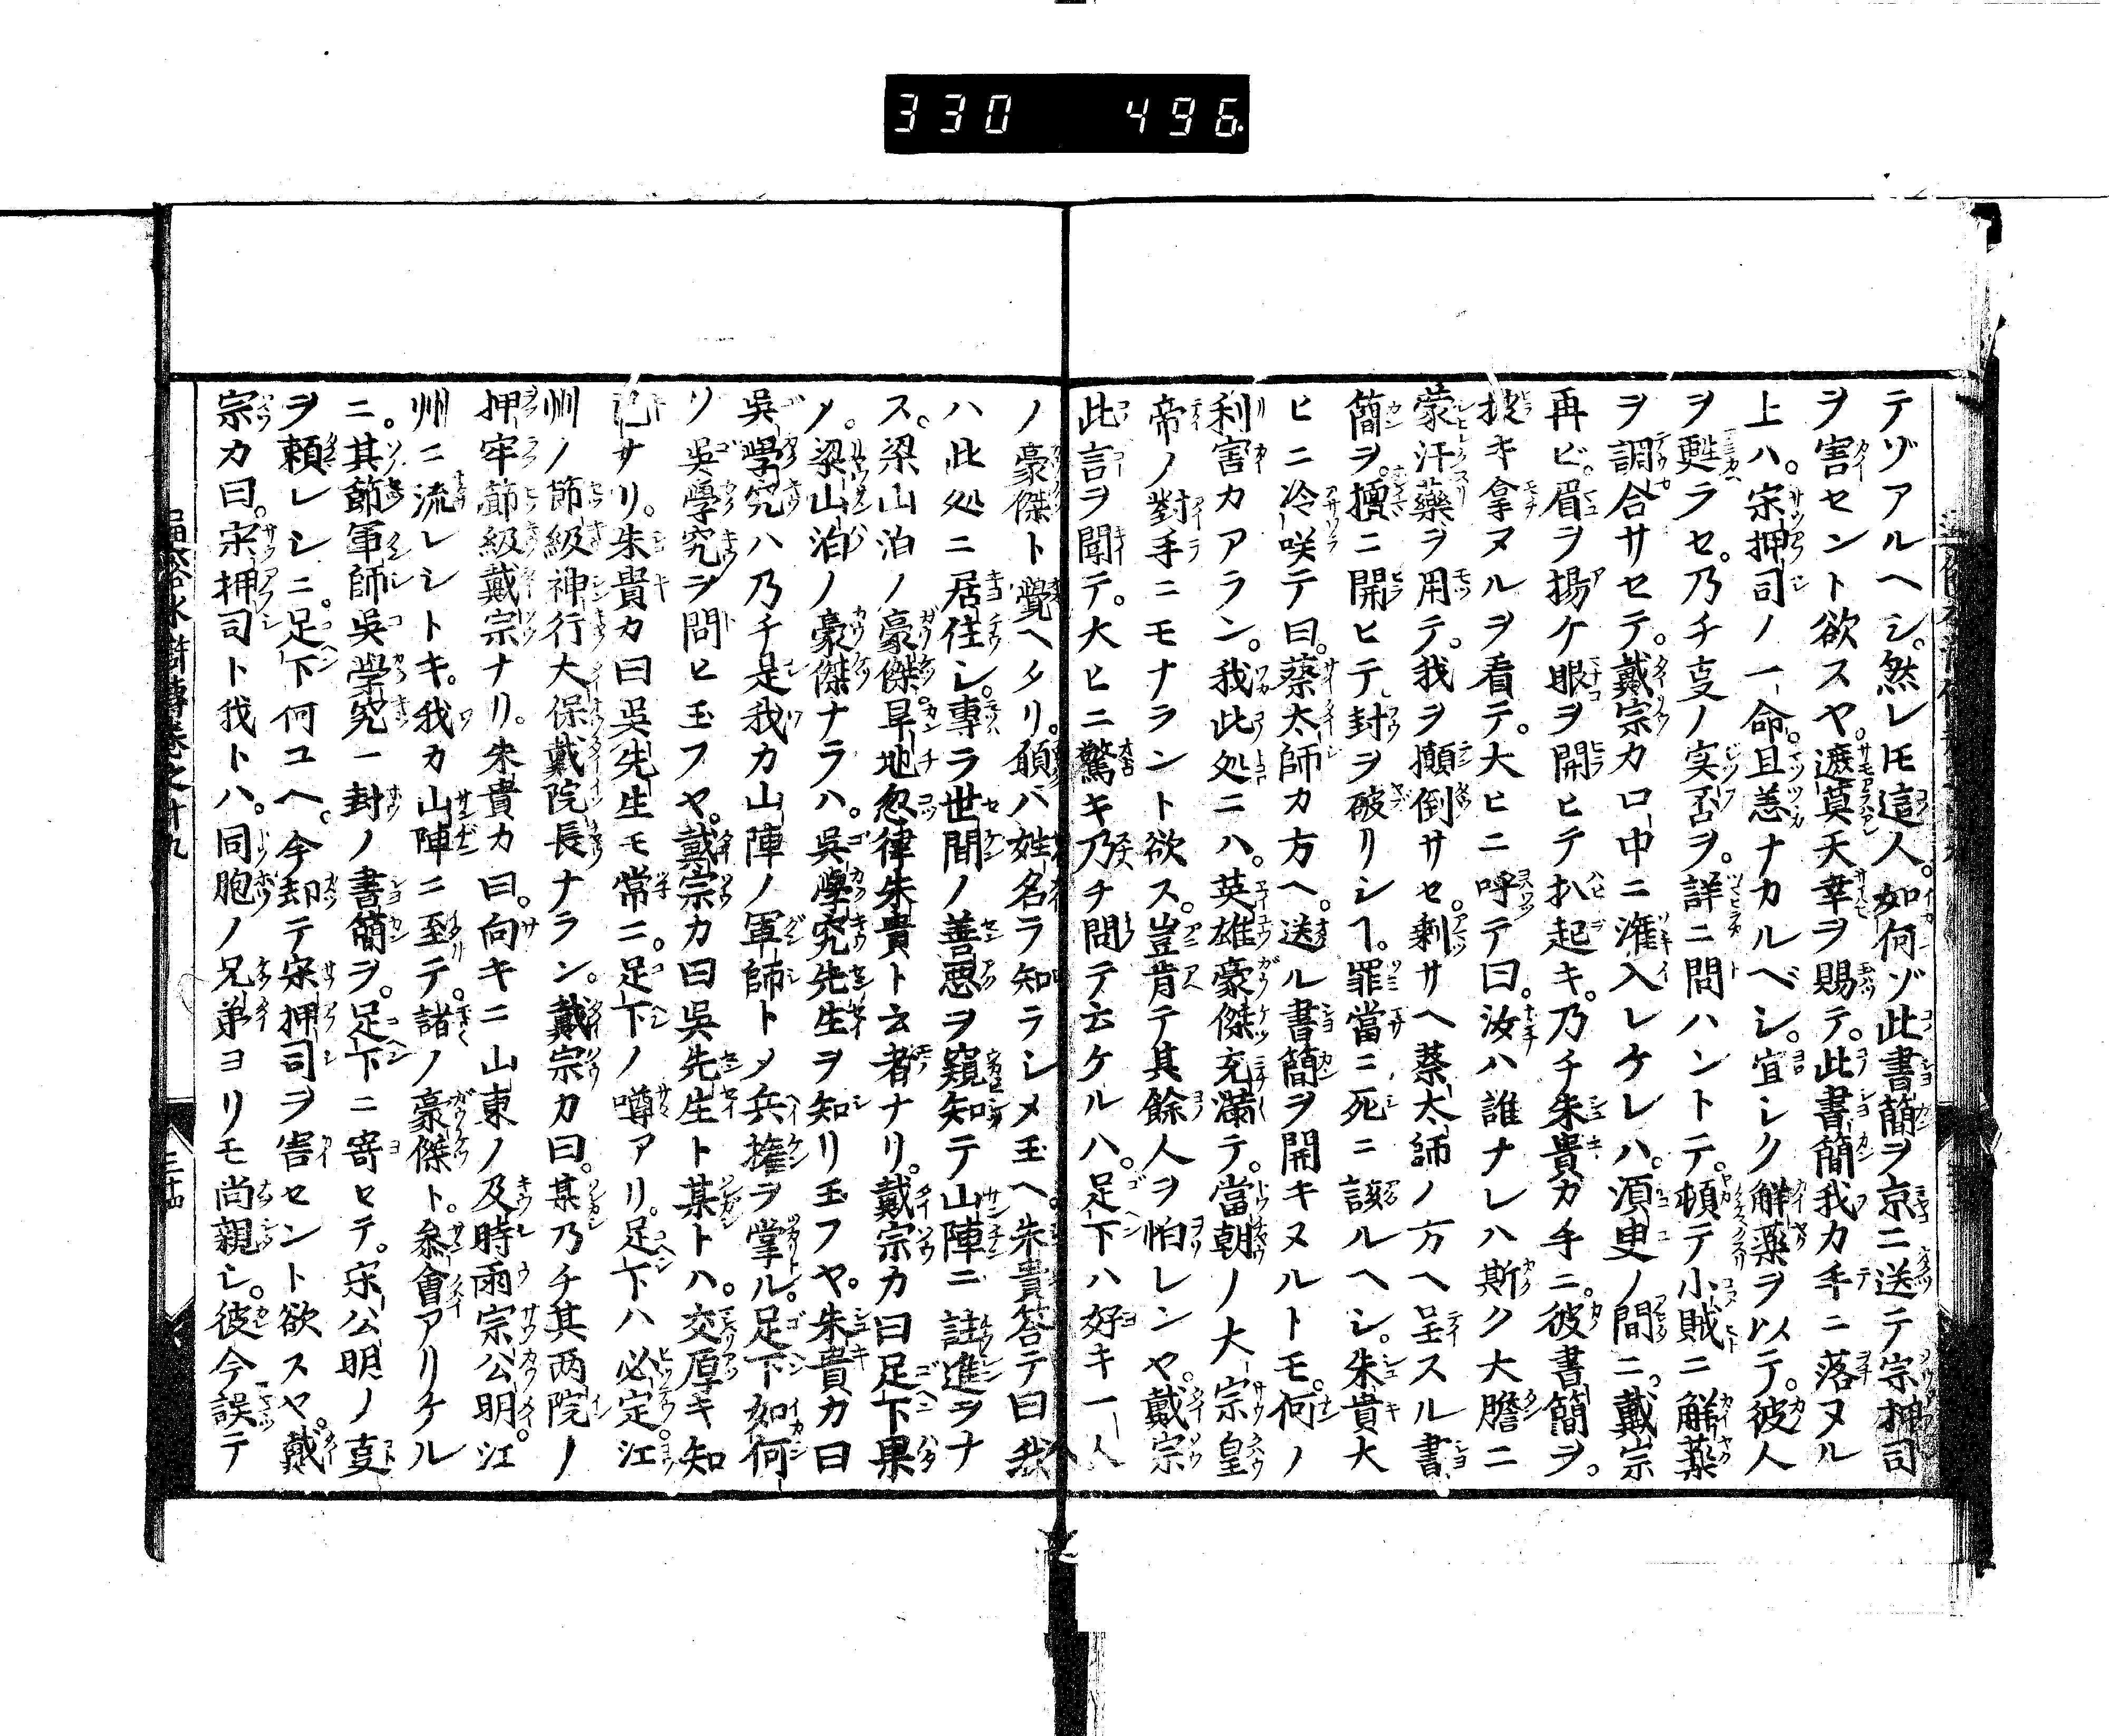 330 496
テゾアルヘシ。然レ𪜈這人。如何ゾ此書簡ヲ京ニ送テ宗押司
ヲ害セント欲スヤ。遮莫天幸ヲ賜テ。此書簡我カ手ニ落ヌル
上ハ。宋押司ノ一命。且恙ナカルベシ。宜シク解薬ヲ以テ。彼人
ヲ甦ラセ。乃チ㕝ノ実否ヲ。詳ニ問ハントテ。頓テ小賊ニ解薬
ヲ調合サセテ。戴宗カ口中ニ潅入レケレハ。須臾ノ間ニ。戴宗
再ビ。眉ヲ揚ケ眼ヲ開ヒテ扒起キ。乃チ朱貴カ手ニ。彼書簡ヲ。
披キ拿ヌルヲ看テ。大ヒニ呼テ曰。汝ハ誰ナレハ斯ク大膽ニ
蒙汗藥ヲ用テ。我ヲ攧倒サセ。剰サヘ蔡太師ノ方ヘ呈スル書
簡ヲ。擅ニ開ヒテ封ヲ破リシヿ。罪當ニ死ニ該ルヘシ。朱貴大
ヒニ冷咲テ曰。蔡太師カ方ヘ。送ル書簡ヲ開キヌルトモ。何ノ
利害カアラン。我此処ニハ。英雄豪傑充滿テ。當朝ノ大宗皇
帝ノ對手ニモナラント欲ス。豈肯テ其餘人ヲ怕レンヤ。戴宗
此言ヲ聞テ。大ヒニ驚キ乃チ問テ云ケルハ。足下ハ好キ一人
ノ豪傑ト覺ヘタリ。願バ姓名ヲ知ラシメ玉ヘ。朱貴答テ曰我
ハ此処ニ居住シ。專ラ世間ノ善悪ヲ窺知テ山陣ニ註進ヲナ
ス。梁山泊ノ豪傑旱地忽律朱貴ト云者ナリ。戴宗カ曰足下果
ノ。梁山泊ノ豪傑ナラハ。呉學究先生ヲ知リ玉フヤ。朱貴カ曰
呉學究ハ乃チ是我カ山陣ノ軍師トメ兵権ヲ掌ル。足下如何
ソ呉學究ヲ問ヒ玉フヤ。戴宗カ曰呉先生ト某トハ。交厚キ知
己ナリ。朱貴カ曰呉先生モ常ニ。足下ノ噂アリ。足下ハ必定。江
州ノ節級神行大保戴院長ナラン。戴宗カ曰。某乃チ其両院ノ
押牢節級戴宗ナリ。朱貴カ曰。向キニ山東ノ及時雨宗公明。江
州ニ流レシトキ。我カ山陣ニ至テ。諸ノ豪傑ト。参會アリケル
ニ。其節軍師呉學究一封ノ書簡ヲ。足下ニ寄セテ。宋公明ノ㕝
ヲ頼レシニ。足下何ユヘ。今却テ宋押司ヲ害セント欲スヤ。戴
宗カ曰。宋押司ト我トハ。同胞ノ兄弟ヨリモ尚親シ。彼今誤テ
水滸傳卷之十九
三十四